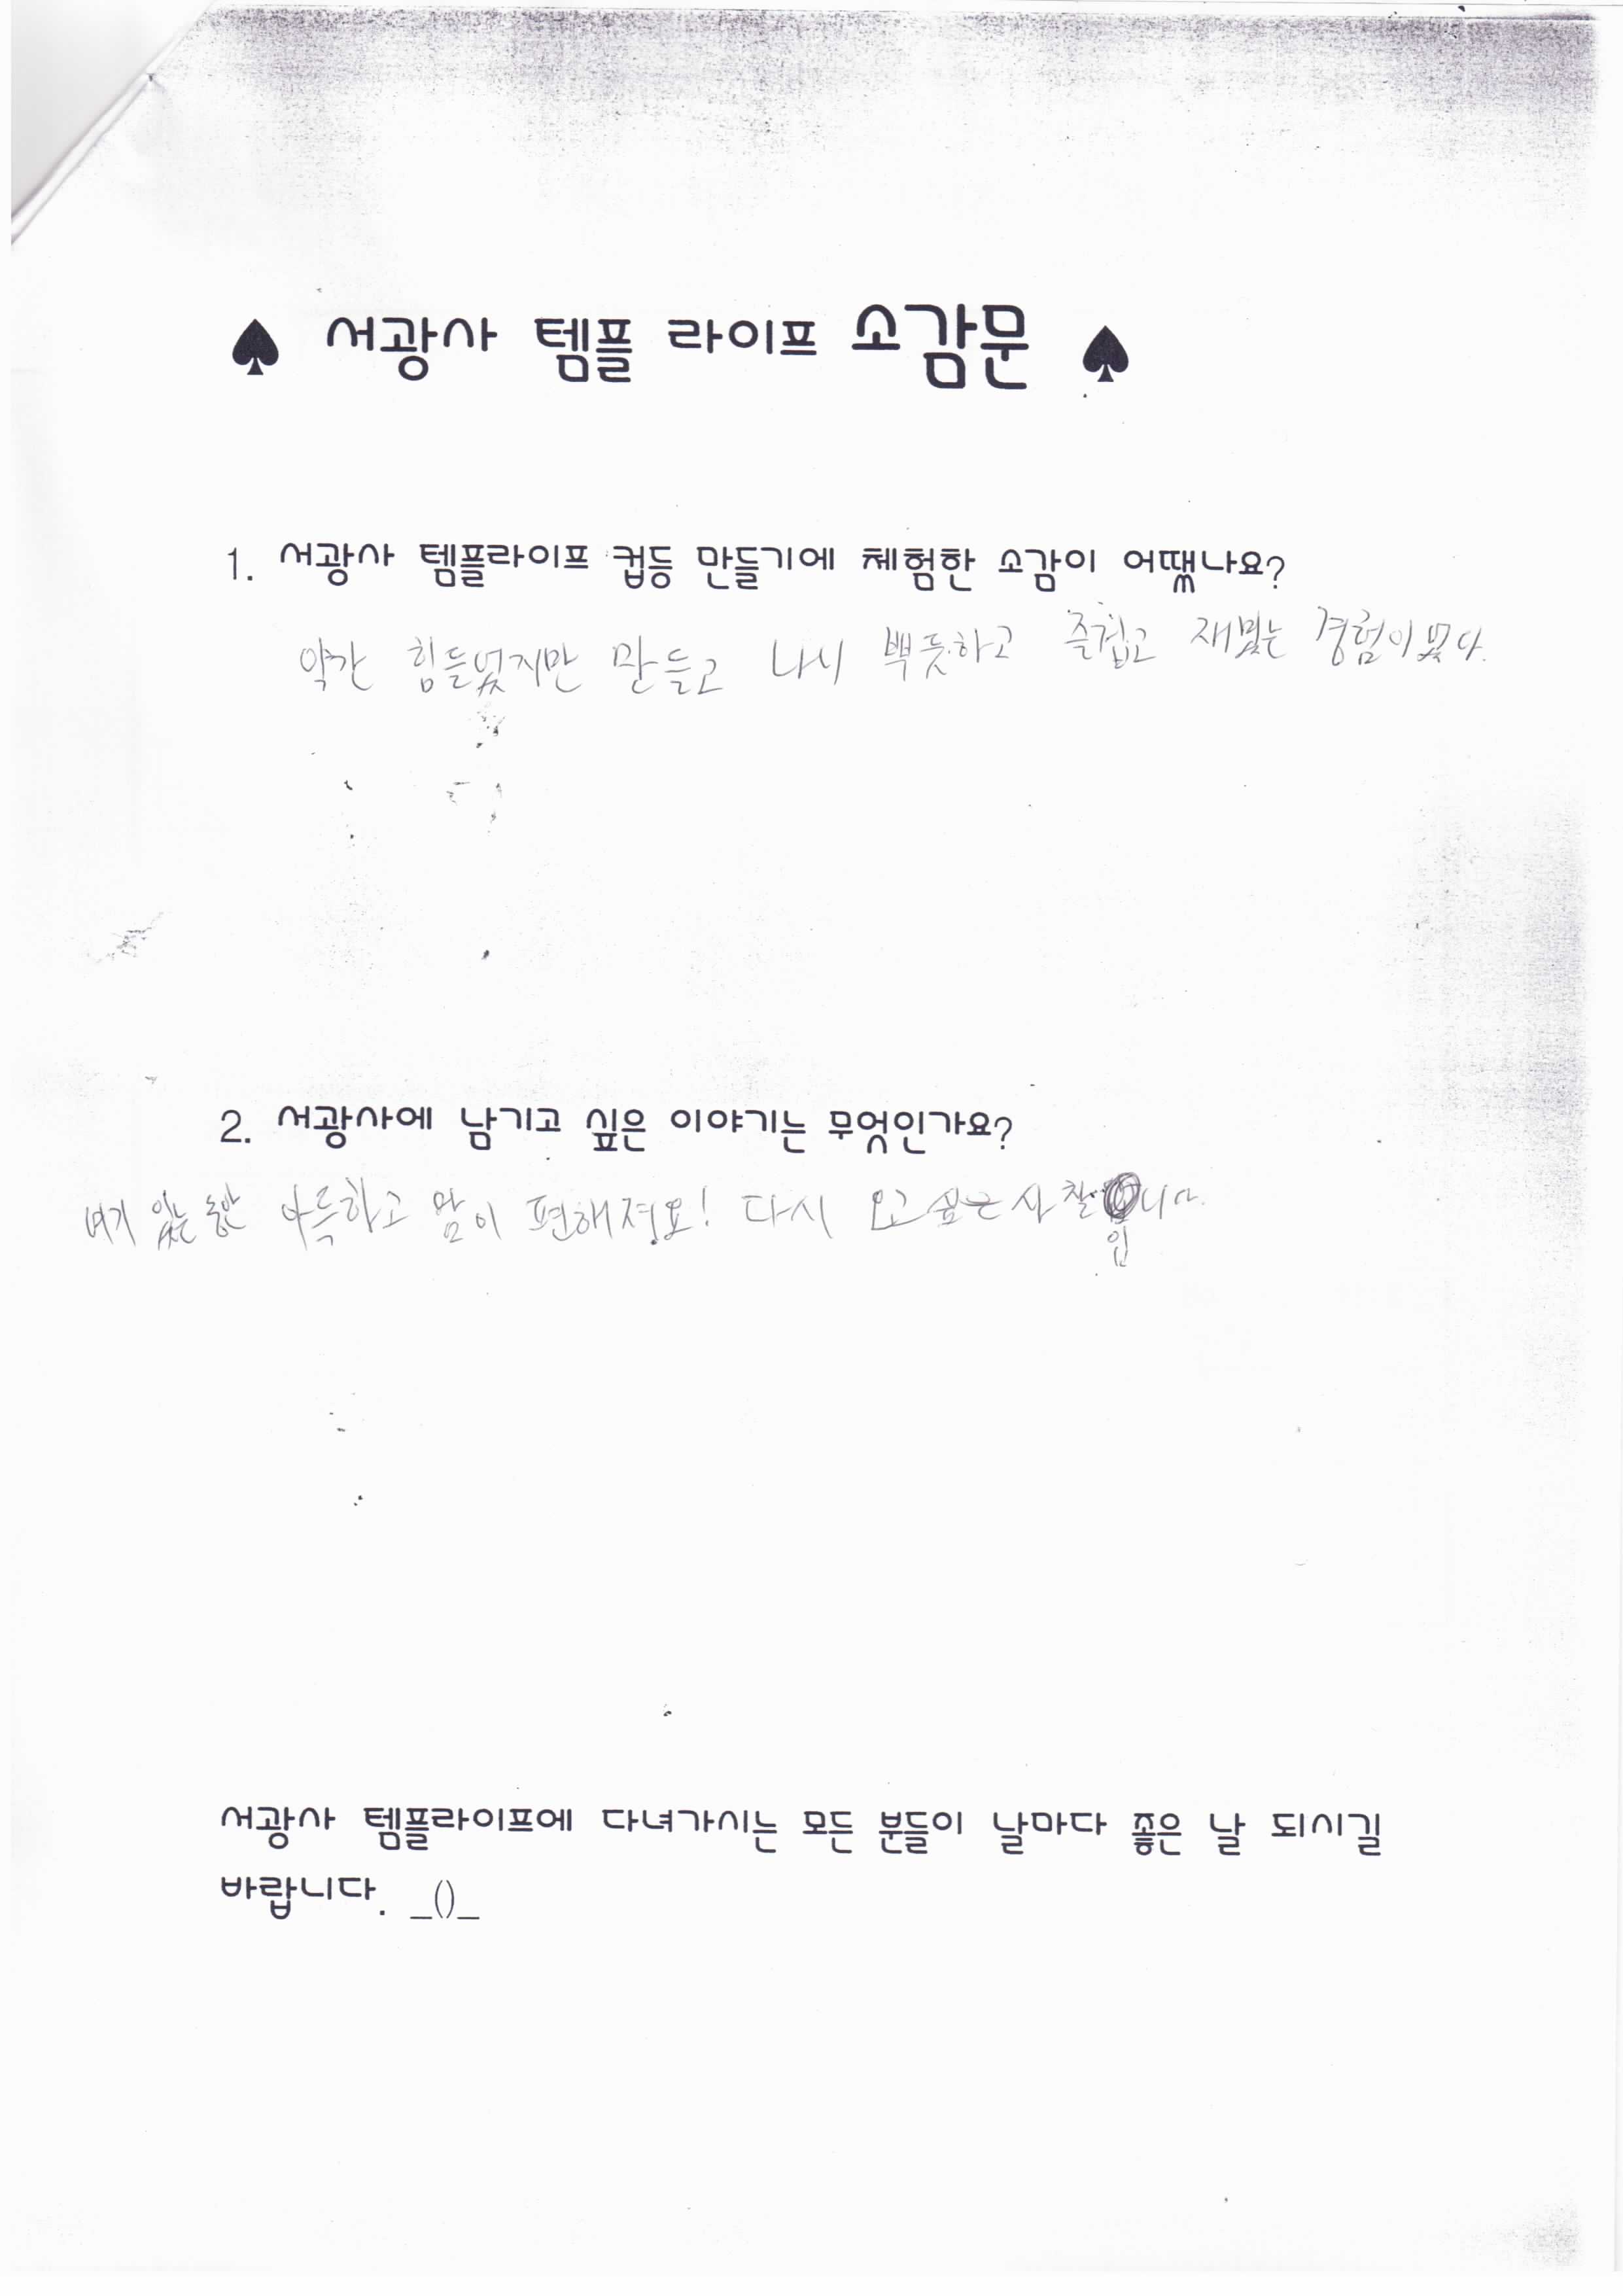 ♠ 서광사 템플 라이프 소감문 ♠
1. 서광사 템플라이프 컵등 만들기에 체험한 소감이 어땠나요?
약간 힘들었지만 만들고 나시 뿌듯하고 즐겁고 재밌는 경험이였다.
2. 서광사에 남기고 싶은 이야기는 무엇인가요?
여기 있는 동안 아득하고 맘이 편해져요! 다시 오고싶은사찰입니다.
서광사 템플라이프에 다녀가시는 모든 분들이 날마다 좋은 날 되시길
바랍니다. _()_